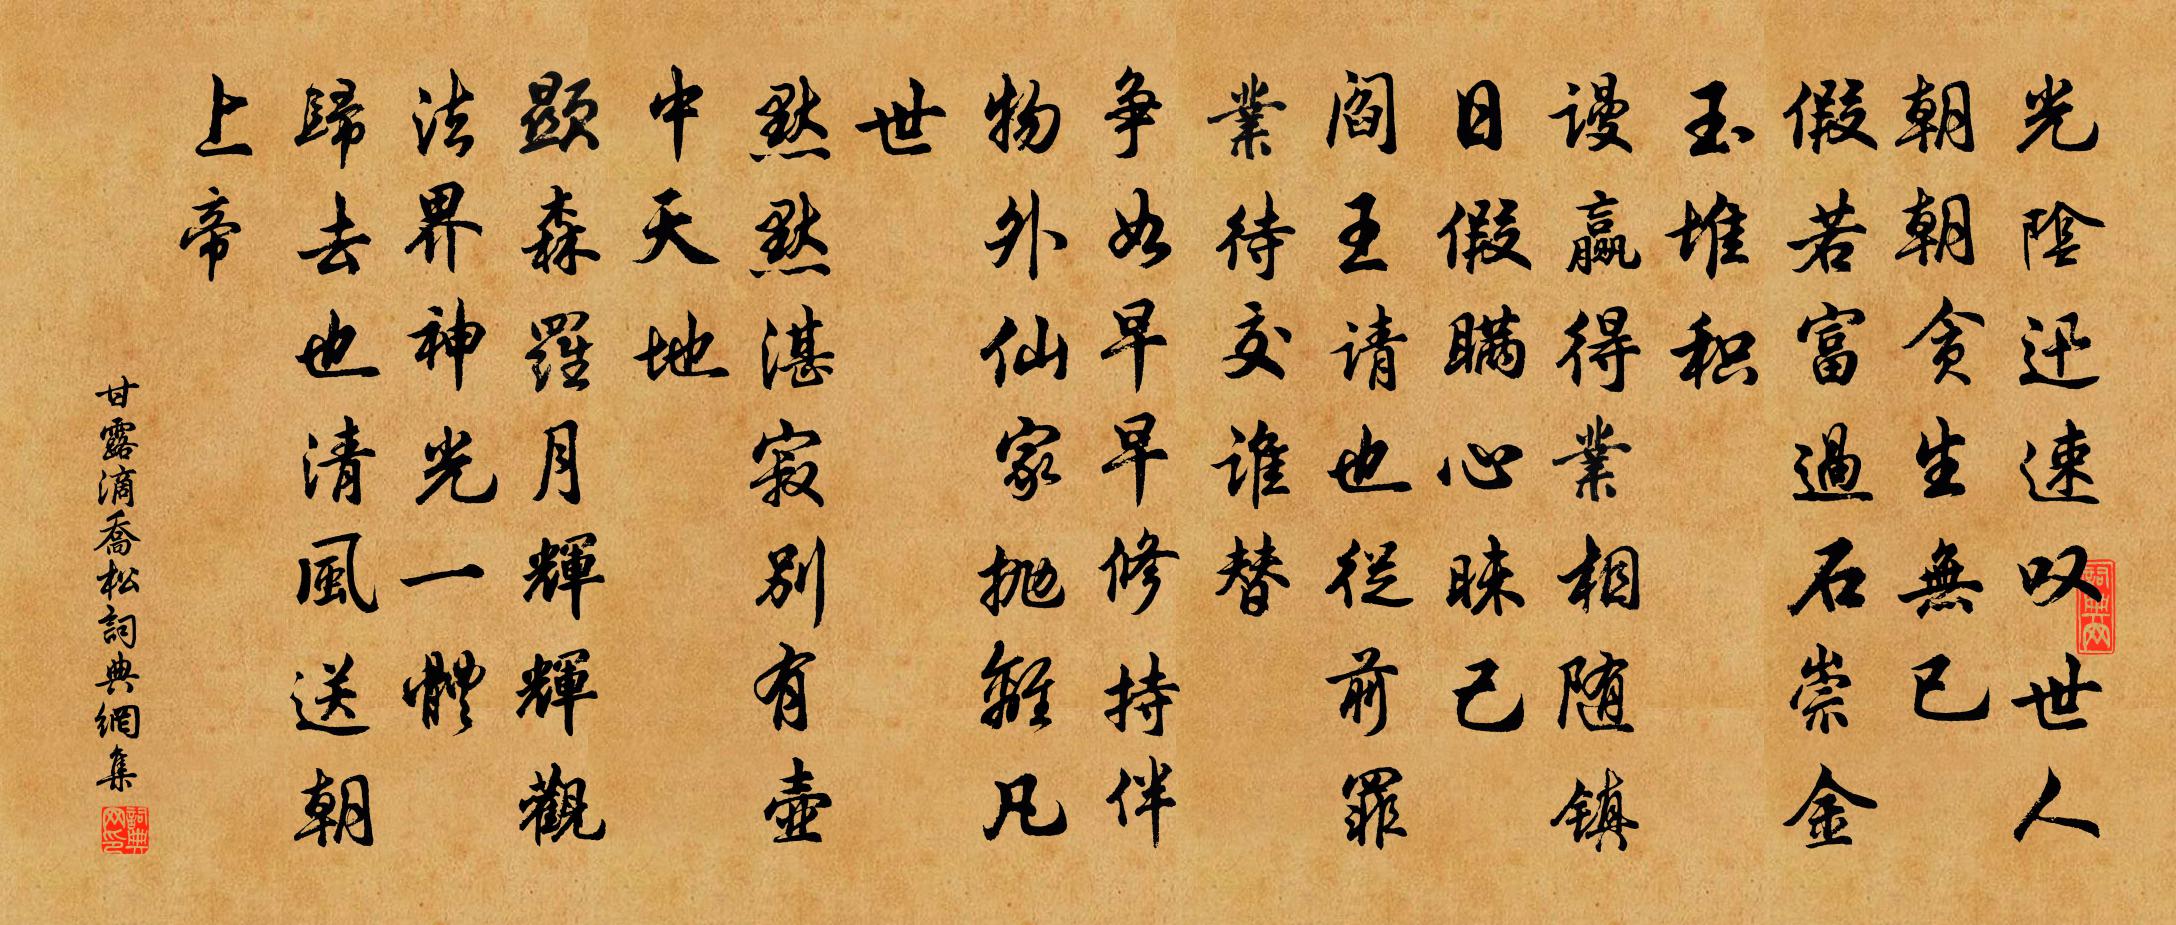 光陰迅速叹世人
朝朝貪生無已
假若富過石崇金
玉堆积
谩赢得業相随镇
日假瞒心昧己
阎王请也從前罪
業待交谁替
争如早早修持伴
物外仙家抛離凡
世
默默湛寂别有壺
中天地
顯森羅月輝輝觀
法界神光一體
歸去也清風送朝
上帝
甘露滴喬松詞典網集
詞典网
詞典网印